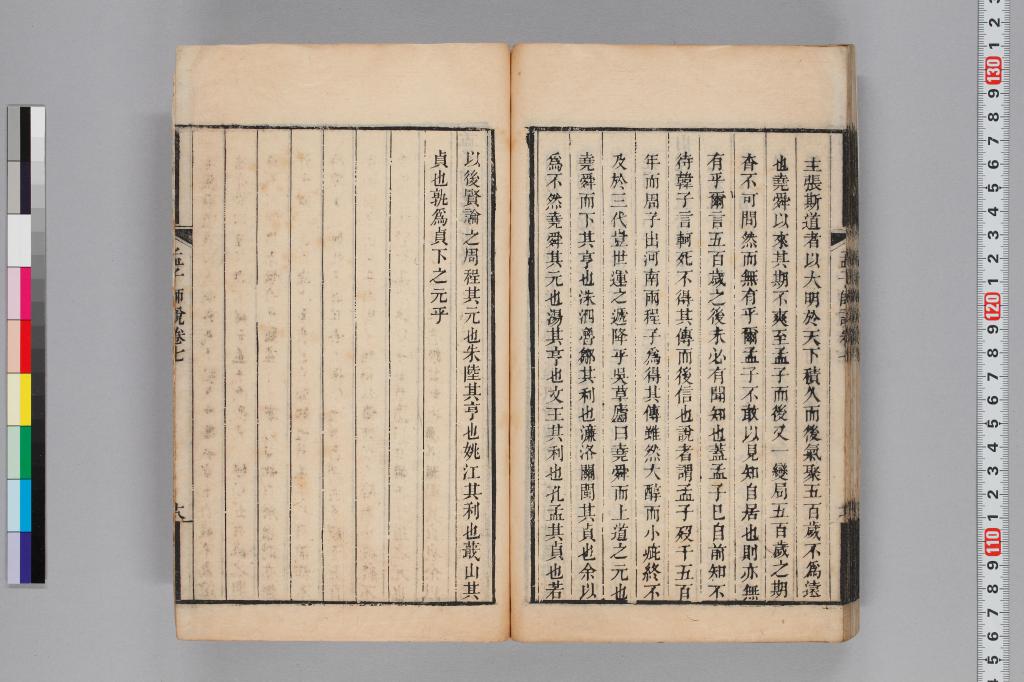 主張斯道者以大明於天下積久而後氣聚五百歲不爲遠
也堯舜以來其期不爽至孟子而後又一變局五百歲之期
杳不可問然而無有乎爾孟子不敢以見知自居也則亦無
有乎爾言五百歲之後未必有聞知也蓋孟子已自前知不
待韓子言軻死不得其傳而後信也說者謂孟子歿千五百
年而周子出河南兩程子爲得其傳雖然大醇而小疵終不
及於三代豈世運之遞降乎吳草廬曰堯舜而上道之元也
堯舜而下其亨也洙泗魯鄒其利也濂洛關閩其貞也余以
爲不然堯舜其元也湯其亨也文王其利也孔孟其貞也若
以後賢論之周程其元也朱陸其亨也姚江其利也蕺山其
貞也孰爲貞下之元乎
孟子師說卷七
六